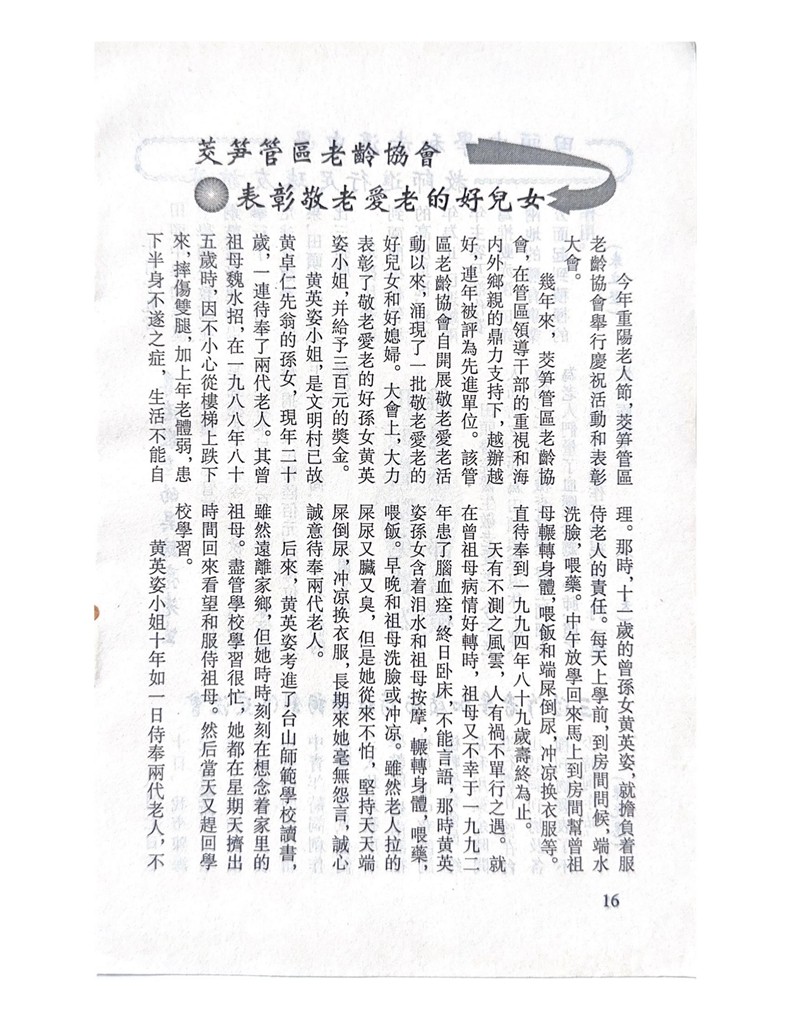 茭笋管區老齡協會
表彰敬老愛老的好兒女
今年重陽老人節,茭笋管區
老齡協會舉行慶祝活動和表彰
大會。
幾年來,茭笋管區老齡協
會,在管區領導干部的重視和海
内外鄉親的鼎力支持下,越辦越
好,連年被評為先進單位。該管
區老齡協會自開展敬老愛老活
動以來,涌現了一批敬老愛老的
好兒女和好媳婦。大會上,大力
表彰了敬老愛老的好孫女黄英
姿小姐,并給予三百元的獎金。
黄英姿小姐,是文明村已故
黄卓仁先翁的孫女,現年二十
歲,一連待奉了兩代老人。其曾
祖母魏水招,在一九八八年八十
五歲時,因不小心從樓梯上跌下
來,摔傷雙腿,加上年老體弱,患
下半身不遂之症,生活不能自
理。那時,十一歲的曾孫女黄英姿,就擔負着服
侍老人的責任。每天上學前,到房間問候,端水
洗臉,喂藥。中午放學回來馬上到房間幫曾祖
母輾轉身體,喂飯和端屎倒尿,冲凉换衣服等。
直待奉到一九九四年八十九歲壽終為止。
天有不測之風雲,人有禍不單行之遇。就
在曾祖母病情好轉時,祖母又不幸于一九九二
年患了腦血痊,終日卧床,不能言語,那時黄英
姿孫女含着泪水和祖母按摩,輾轉身體,喂藥,
喂飯。早晚和祖母洗臉或冲凉。雖然老人拉的
屎尿又臟又臭,但是她從來不怕,堅持天天端
屎倒尿,冲凉换衣服,長期來她毫無怨言,誠心
誠意待奉兩代老人。
后來,黄英姿考進了台山師範學校讀書,
雖然遠離家鄉,但她時時刻刻在想念着家里的
祖母。盡管學校學習很忙,她都在星期天擠出
時間回來看望和服侍祖母。然后當天又趕回學
校學習。
黄英姿小姐十年如一日侍奉兩代老人,不
16